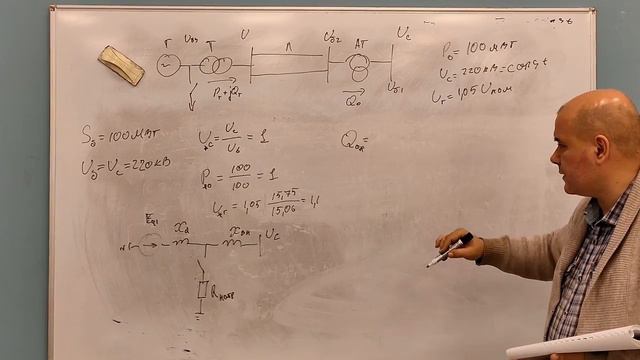 Г U_б3 Т U Л U_б2 АТ U_c
P_г+jQ_г Q_0 U_б1
P_0 = 100 МВт
U_c = 220 кВ = const
U_г = 1,05 U_ном
S_б = 100 МВт
U_б = U_c = 220 кВ
U_*c = U_c / U_б = 1
P_*0 = 100 / 100 = 1
U_*г = 1,05 15,75 / 15,06 = 1,1
Q_0* =
E_q1 x_d x_вн U_c
R_нагр